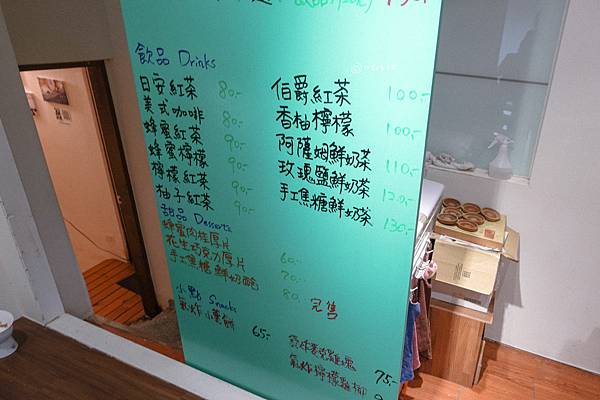 飲品 Drinks
日安紅茶 80.-
美式咖啡 80.-
蜂蜜紅茶 90.-
蜂蜜檸檬 90.-
檸檬紅茶 90.-
柚子紅茶 90.-
伯爵紅茶 100.-
香柚檸檬 100.-
阿薩姆鮮奶茶 110.-
玫瑰鹽鮮奶茶 120.-
手工焦糖鮮奶茶 130.-
甜品 Desserts
蜂蜜肉桂厚片 60.-
花生巧克力厚片 70.-
手工焦糖鮮奶酪 80.- 完售
小點 Snacks
氣炸小薯餅 65.-
75.-
氣炸檸檬雞柳